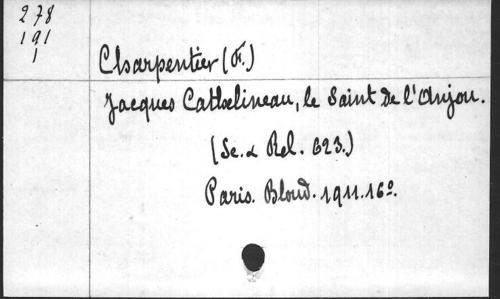 278
191
1
Charpentier (F.)
Jacques Cathelineau, le Saint de l'Anjou.
(Sc. & Rel. 623.)
Paris. Bloud. 1911. 16º.